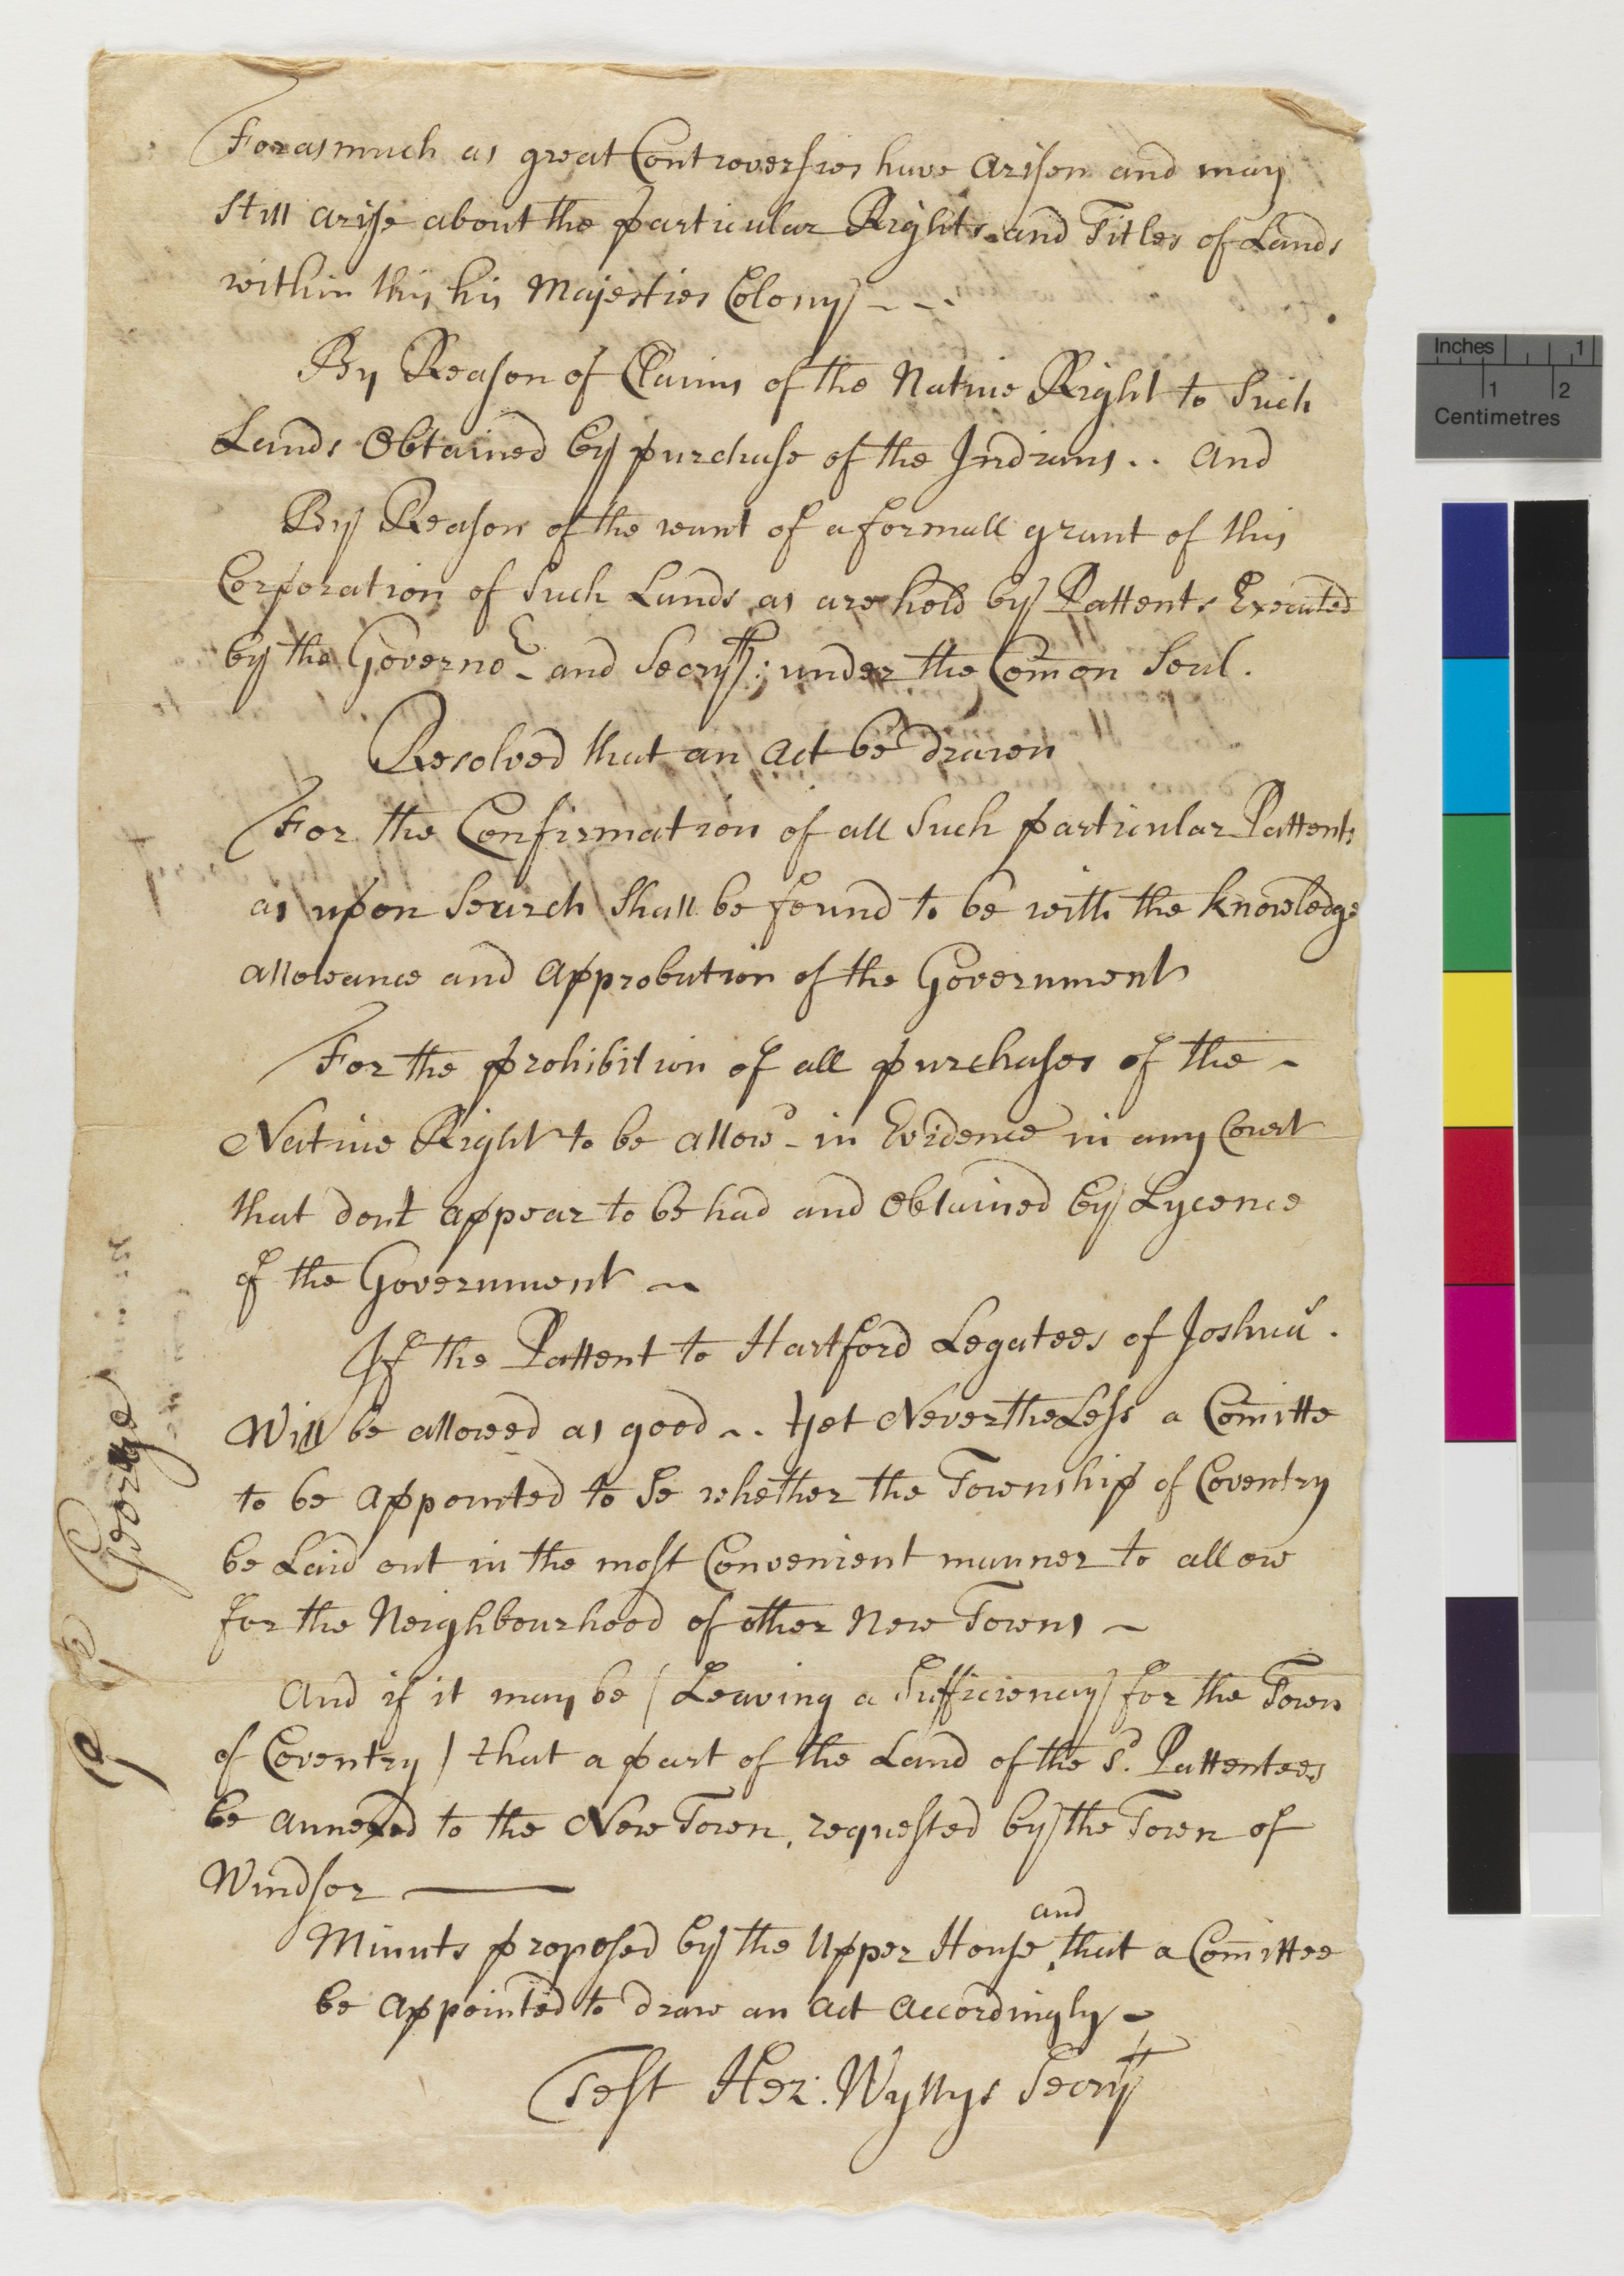 Forasmuch as great Controversies have arisen and may
still arise about the particular Rights and Titles of Lands
within this his Majesties Colony - - -
By Reason of Claims of the Native Right to Such
Lands Obtained by purchase of the Indians .. and
By Reason of the want of a formall grant of this
Corporation of Such Lands as are held by Pattents Executed
by the Governor - and Secry: under the Comon Seal.
Resolved that an Act be drawn
For the Confirmation of all Such particular Pattents
as upon Search Shall be found to be with the knowledge
allowance and approbation of the Government
For the prohibition of all purchases of the -
Native Right to be allowd - in Evidence in any Court
that dont appear to be had and Obtained by Lycence
of the Government ~
If the Pattent to Hartford Legatees of Joshuas.
Will be allowed as good ~. yet NevertheLess a Comitte
to be appointed to Se whether the Township of Coventry
be Laid out in the most Convenient manner to allow
for the Neighbourhood of other New Towns ~
And if it may be (Leaving a Sufficiency for the Town
of Coventry) that a part of the Land of the sd. Pattentees
be annexed to the New Town, requested by the Town of
Windsor ——
and
Minuts proposed by the Upper House, that a Comittee
be appointed to draw an Act Accordingly ~
Test Hez: Wyllys Secry
George
Inches 1
1 2
Centimetres